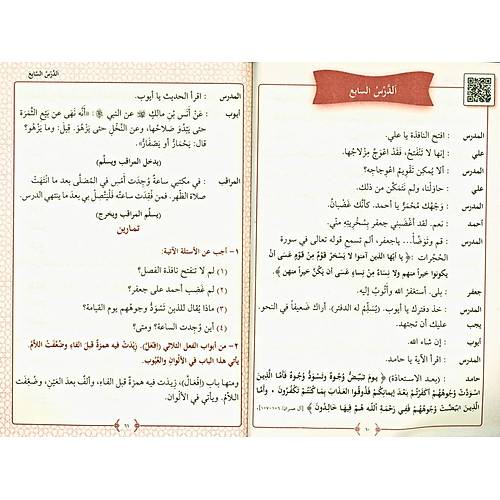 اَلدَّرْسُ السابع
المدرس : افتح النافذة يا علي.
علي : إنها لا تَنْفَتِحُ، فَقَدْ اعْوَجَّ مِزْلاجُها.
المدرس : ألا يُمكن تَقْويمُ اعْوِجاجِه؟
علي : حاوَلْنا، ولم نَتَمَكَّن من ذلك.
المدرس : وَجْهُكَ مُحْمَرٌّ يا أحمد. كأنَّكَ غَضْبانُ.
أحمد : نعم. لقد أَغْضَبَني جعفر بِسُخْرِيَتِه منّي.
المدرس : قم وتَوَضَّأْ... ياجعفر، ألم تسمع قوله تعالى في سورة
الحُجُرات : ﴿ يا أيّها الذين آمنوا لا يَسْخَرْ قَوْمٌ مِنْ قَوْمٍ عَسَى أَنْ
يكونوا خيراً منهم ولا نِساءٌ مِنْ نِساءٍ عَسَى أن يَكُنَّ خيراً منهن ﴾.
جعفر : بلى. أستغفرُ الله وأتُوبُ إليه.
المدرس : خذ دفترك يا أيوب. (يُسَلِّمُ له الدفتر). أراك ضَعيفاً في النحو.
يجب عليك أن تجتهد.
أيوب : إن شاء الله.
المدرس : اقرأ الآية يا حامد.
حامد : (بعد الاستعاذة) ﴿ يوم تَبْيَضُّ وُجوهٌ وتَسْوَدُّ وُجوهٌ فَأمَّا الَّذِينَ
اسْوَدَّتْ وُجُوهُهُمْ أكَفَرْتُمْ بَعْدَ إيمانِكُمْ فَذُوقُوا العَذَابَ بِمَا كُنْتُمْ تَكْفُرُونَ . وَأَمَّا
الَّذِينَ ابْيَضَّتْ وُجُوهُهُمْ فَفِي رَحْمَةِ اللهِ هُمْ فِيهَا خَالِدُونَ ﴾ [آل عمران: ١٠٦-١٠٧].
٦٠
اَلدَّرْسُ السَّابِع
المدرس : اقرأ الحديث يا أيوب.
أيوب : عَنْ أَنَسِ بْنِ مالكٍ ﷺ عن النبي ﷺ: «أنَّه نَهَى عن بَيْعِ الثَّمَرَة
حتى يَبْدُوَ صَلاحُها، وعن النَّخْلِ حتى يَزْهُوَ. قيلَ: وما يَزْهُوْ؟
قال: يَحْمَارُّ أو يَصْفَارُّ».
(يدخل المراقب ويسلّم)
المراقب : في مكتبي ساعةٌ وُجِدَتْ أمْسِ في المُصَلَّى بعد ما انْتَهَتْ
صلاة الظُّهر. فمن فُقِدَتْ ساعتُه فَلْيَتَّصِلْ بي بعد ما ينتهي الدرس.
(يسلّم المراقب ويخرج)
تمارين
١- أجب عن الأسئلة الآتية:
(١) لم لا تنفتح نافذة الفصل؟
(٢) لم غَضِب أحمد على جعفر؟
(٣) ماذا يُقال للذين تَسْوَدُّ وجوهُهم يوم القيامة؟
(٤) أين وُجِدت الساعة؟ ومتى؟
٢- من أبواب الفعل الثلاثي (افْعَلَّ). زيدَت فيه همزةٌ قبلَ الفاءِ، وضُعِّفَت اللامُ.
يأتي هذا الباب في الألْوانِ والعُيُوب.
ومنها باب (افْعَالَّ)، زيدَت فيه همزةٌ قبلَ الفاءِ، وألفٌ بعدَ العَيْنِ، وضُعِّفَت
اللامُ. ويأتي في الألوان.
٦١